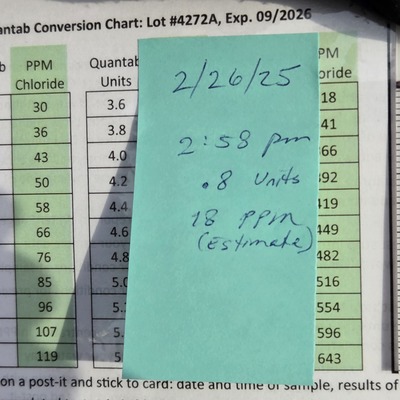 antab Conversion Chart: Lot #4272A, Exp. 09/2026
PPM Chloride
Quantab Units
PM
oride
30 3.6 18
36 3.8 41
43 4.0 66
50 4.2 392
58 4.4 419
66 4.6 449
76 4.8 482
85 5.0 516
96 5. 554
107 5. 596
119 5 643
2/26/25
2:58 pm
.8 Units
18 PPM
(Estimate)
on a post-it and stick to card: date and time of sample, results of